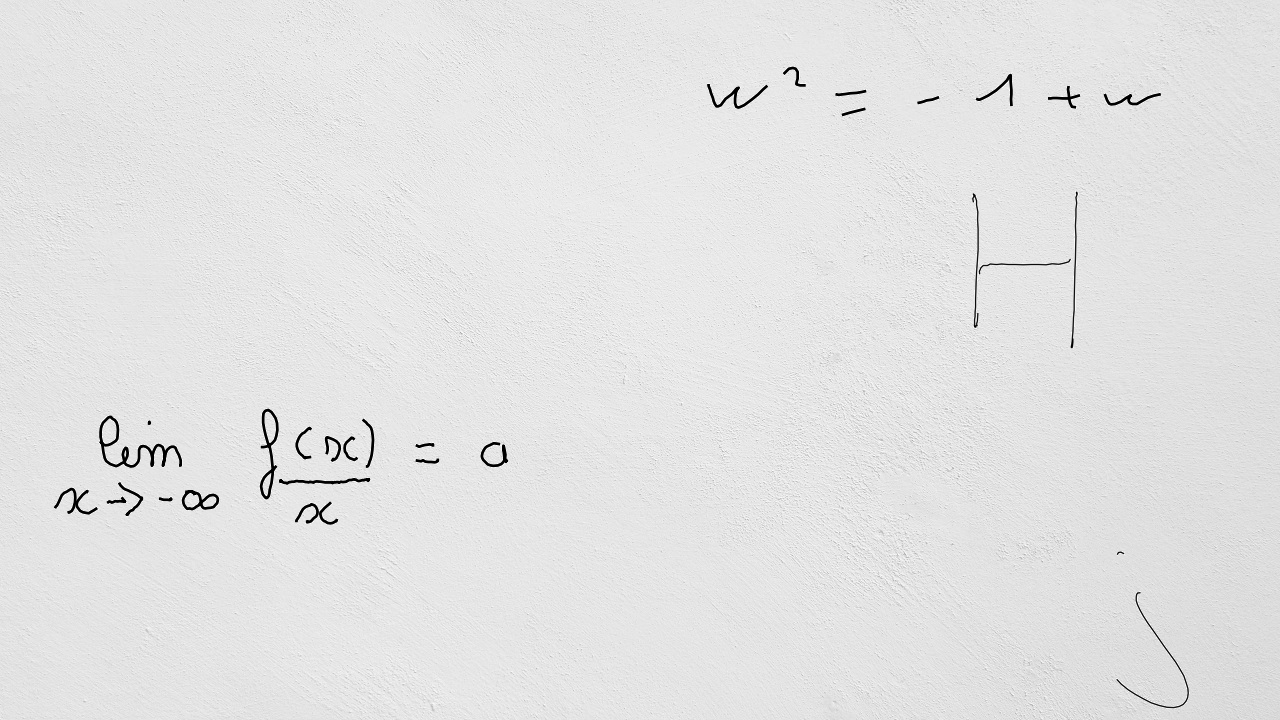 w² = - 1 + w
H
lim_{x→-∞} f(x)/x = a
j